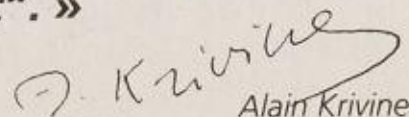 . »
A. Krivine
Alain Krivine